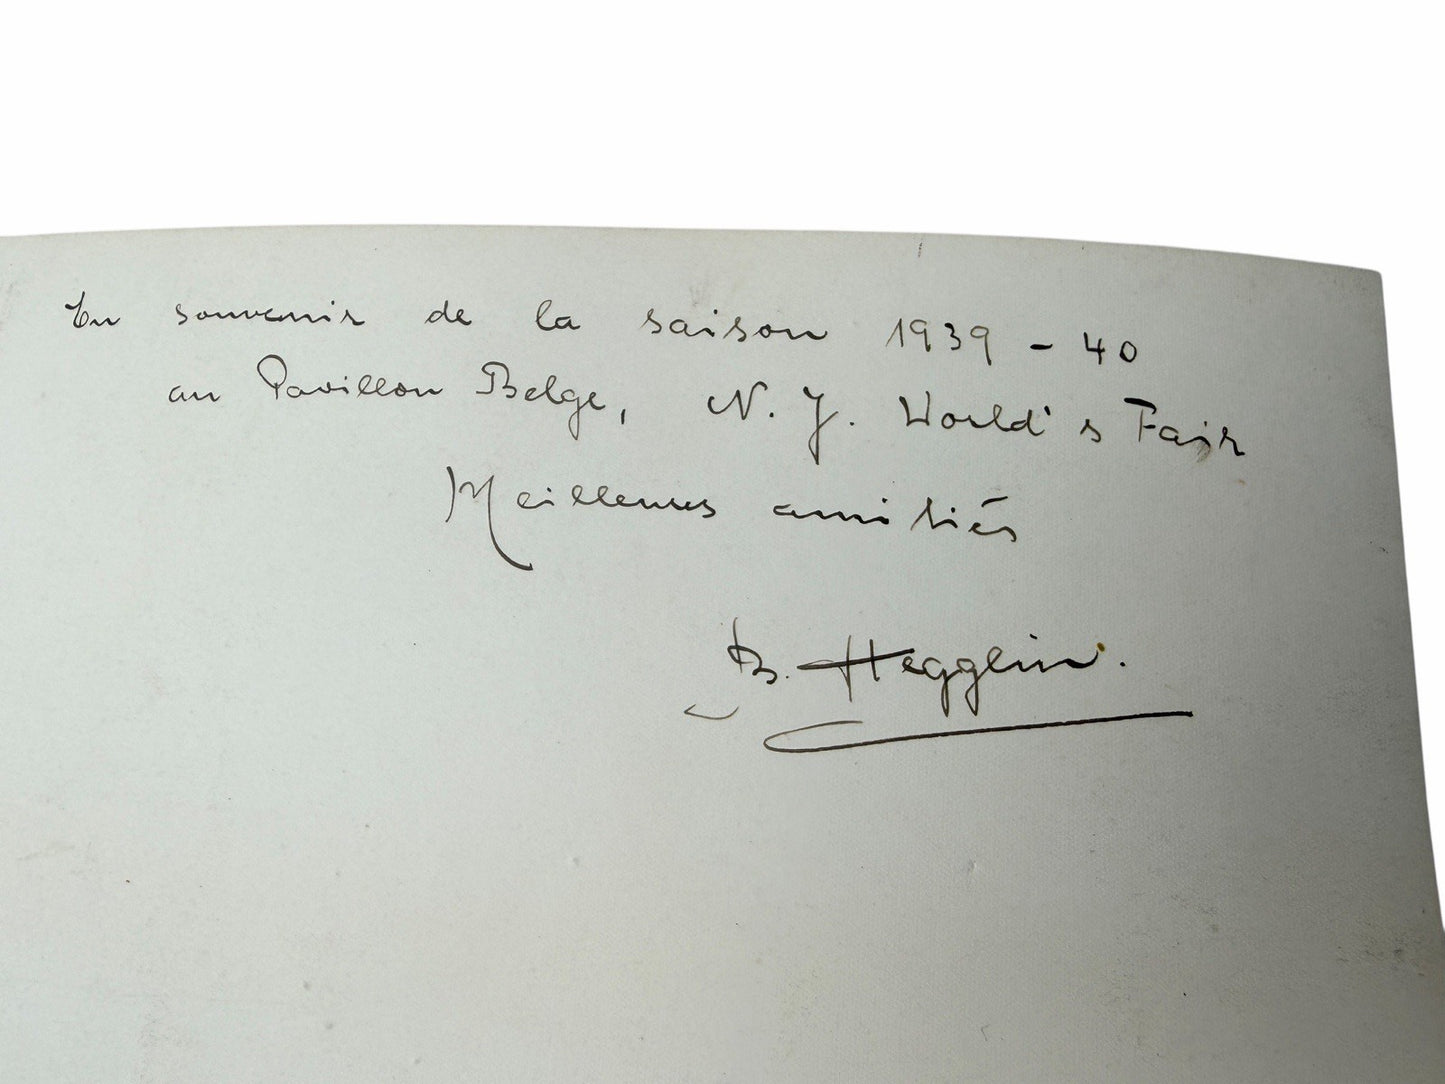 En souvenir de la saison 1939 - 40
au Pavillon Belge, N. Y. World's Fair
Meilleures amitiés
B. Hegglin.